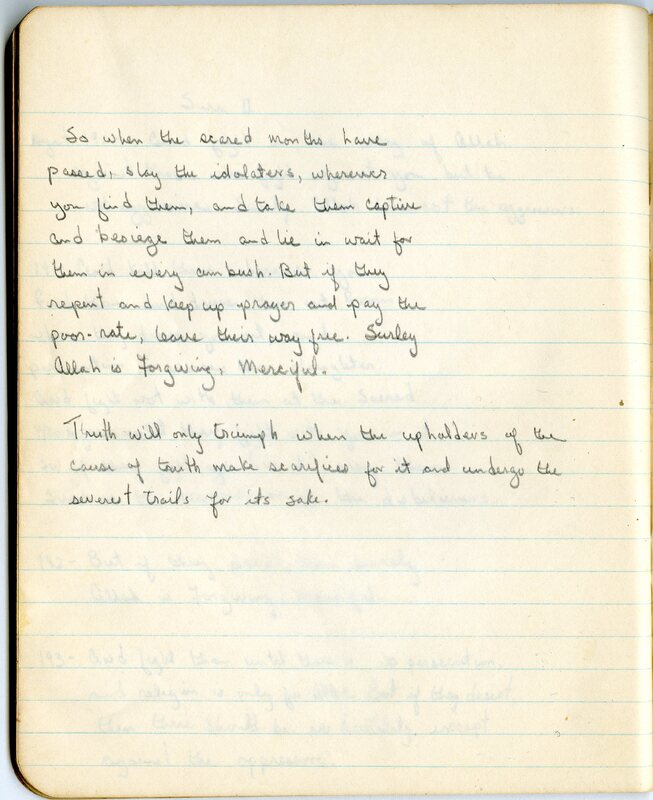 So when the scared months have
passed, slay the idolaters, wherever
you find them, and take them captive
and besiege them and lie in wait for
them in every ambush. But if they
repent and keep up prayer and pay the
poor-rate, leave their way free. Surley
Allah is Forgiving, Merciful.
Thruth will only triumph when the upholders of the
cause of truth make scarifices for it and undergo the
severest trails for its sake.